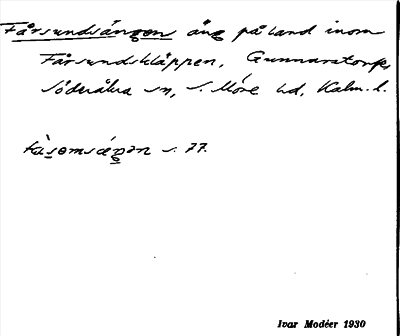 Fårsundsängen äng på land inom
Fårsundskläppen, Gunnarstorp,
Söderåkra sn, S. Möre hd, Kalm. l.
s. 77.
Ivar Modéer 1930